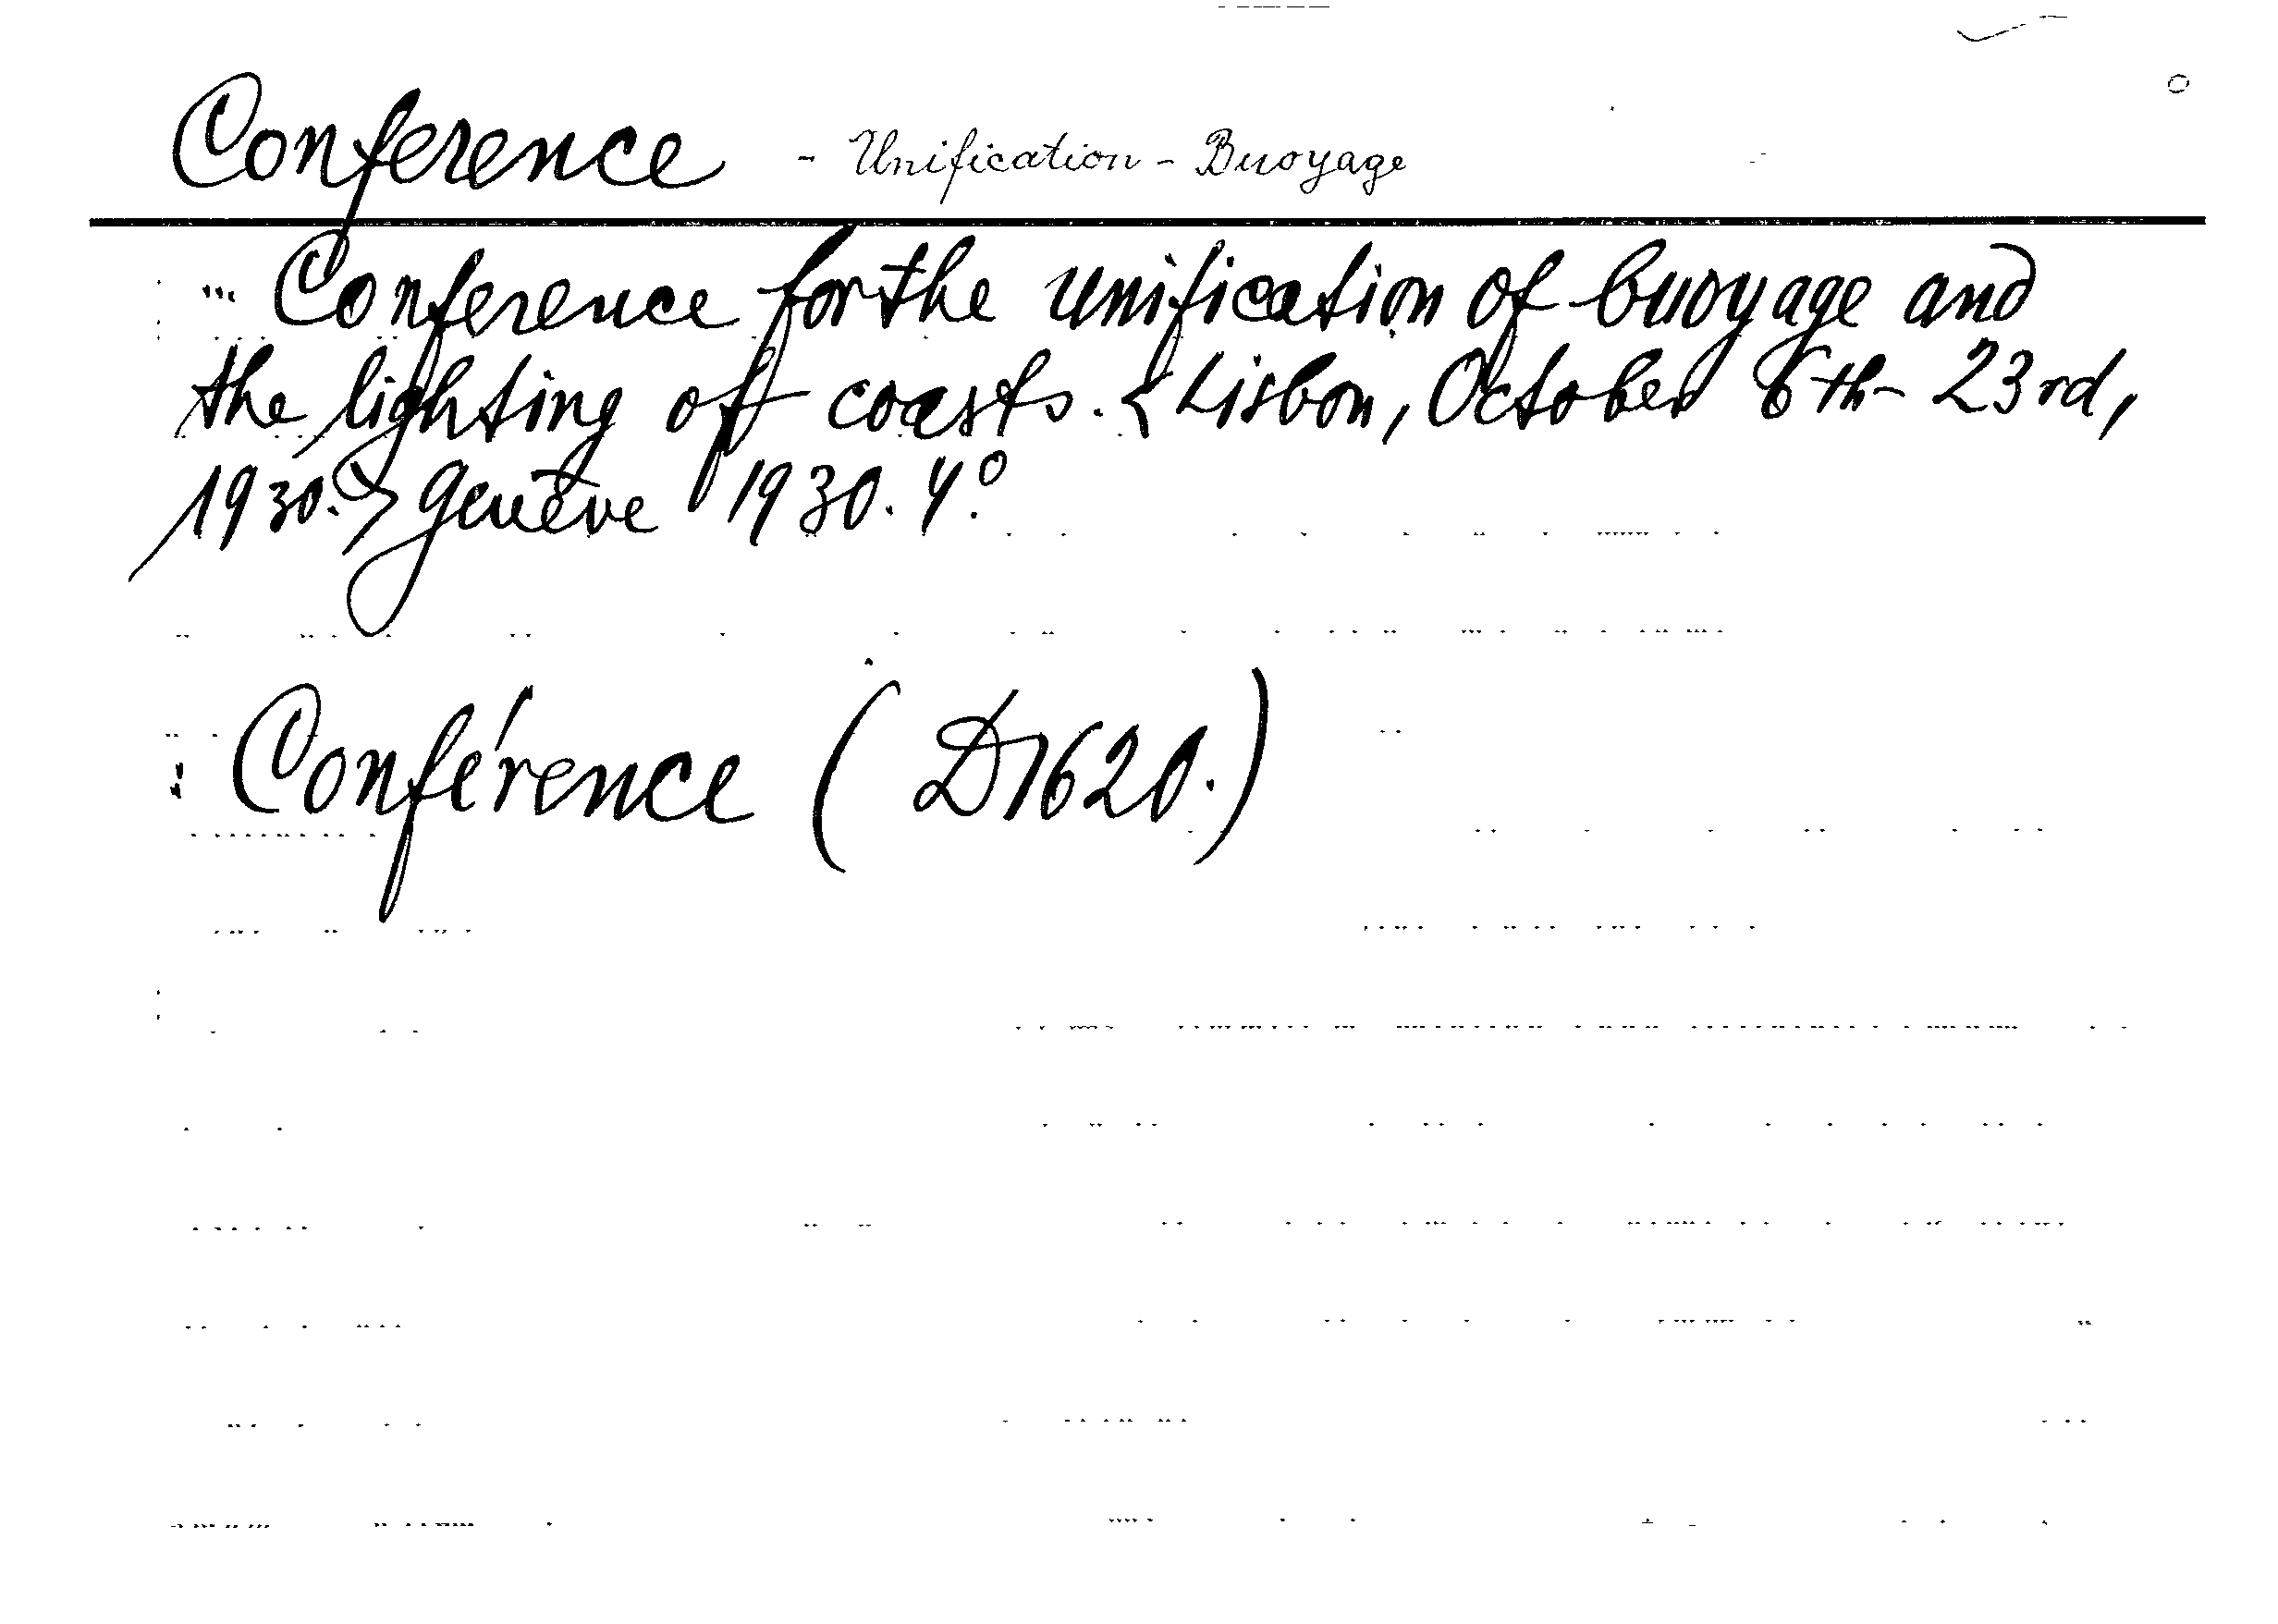 Conference - Unification - Buoyage
... Conference for the unification of buoyage and
the lighting of coasts. < Lisbon, October 6th - 23rd,
1930. > Genève 1930. 4°.
: Conférence (D1620.)